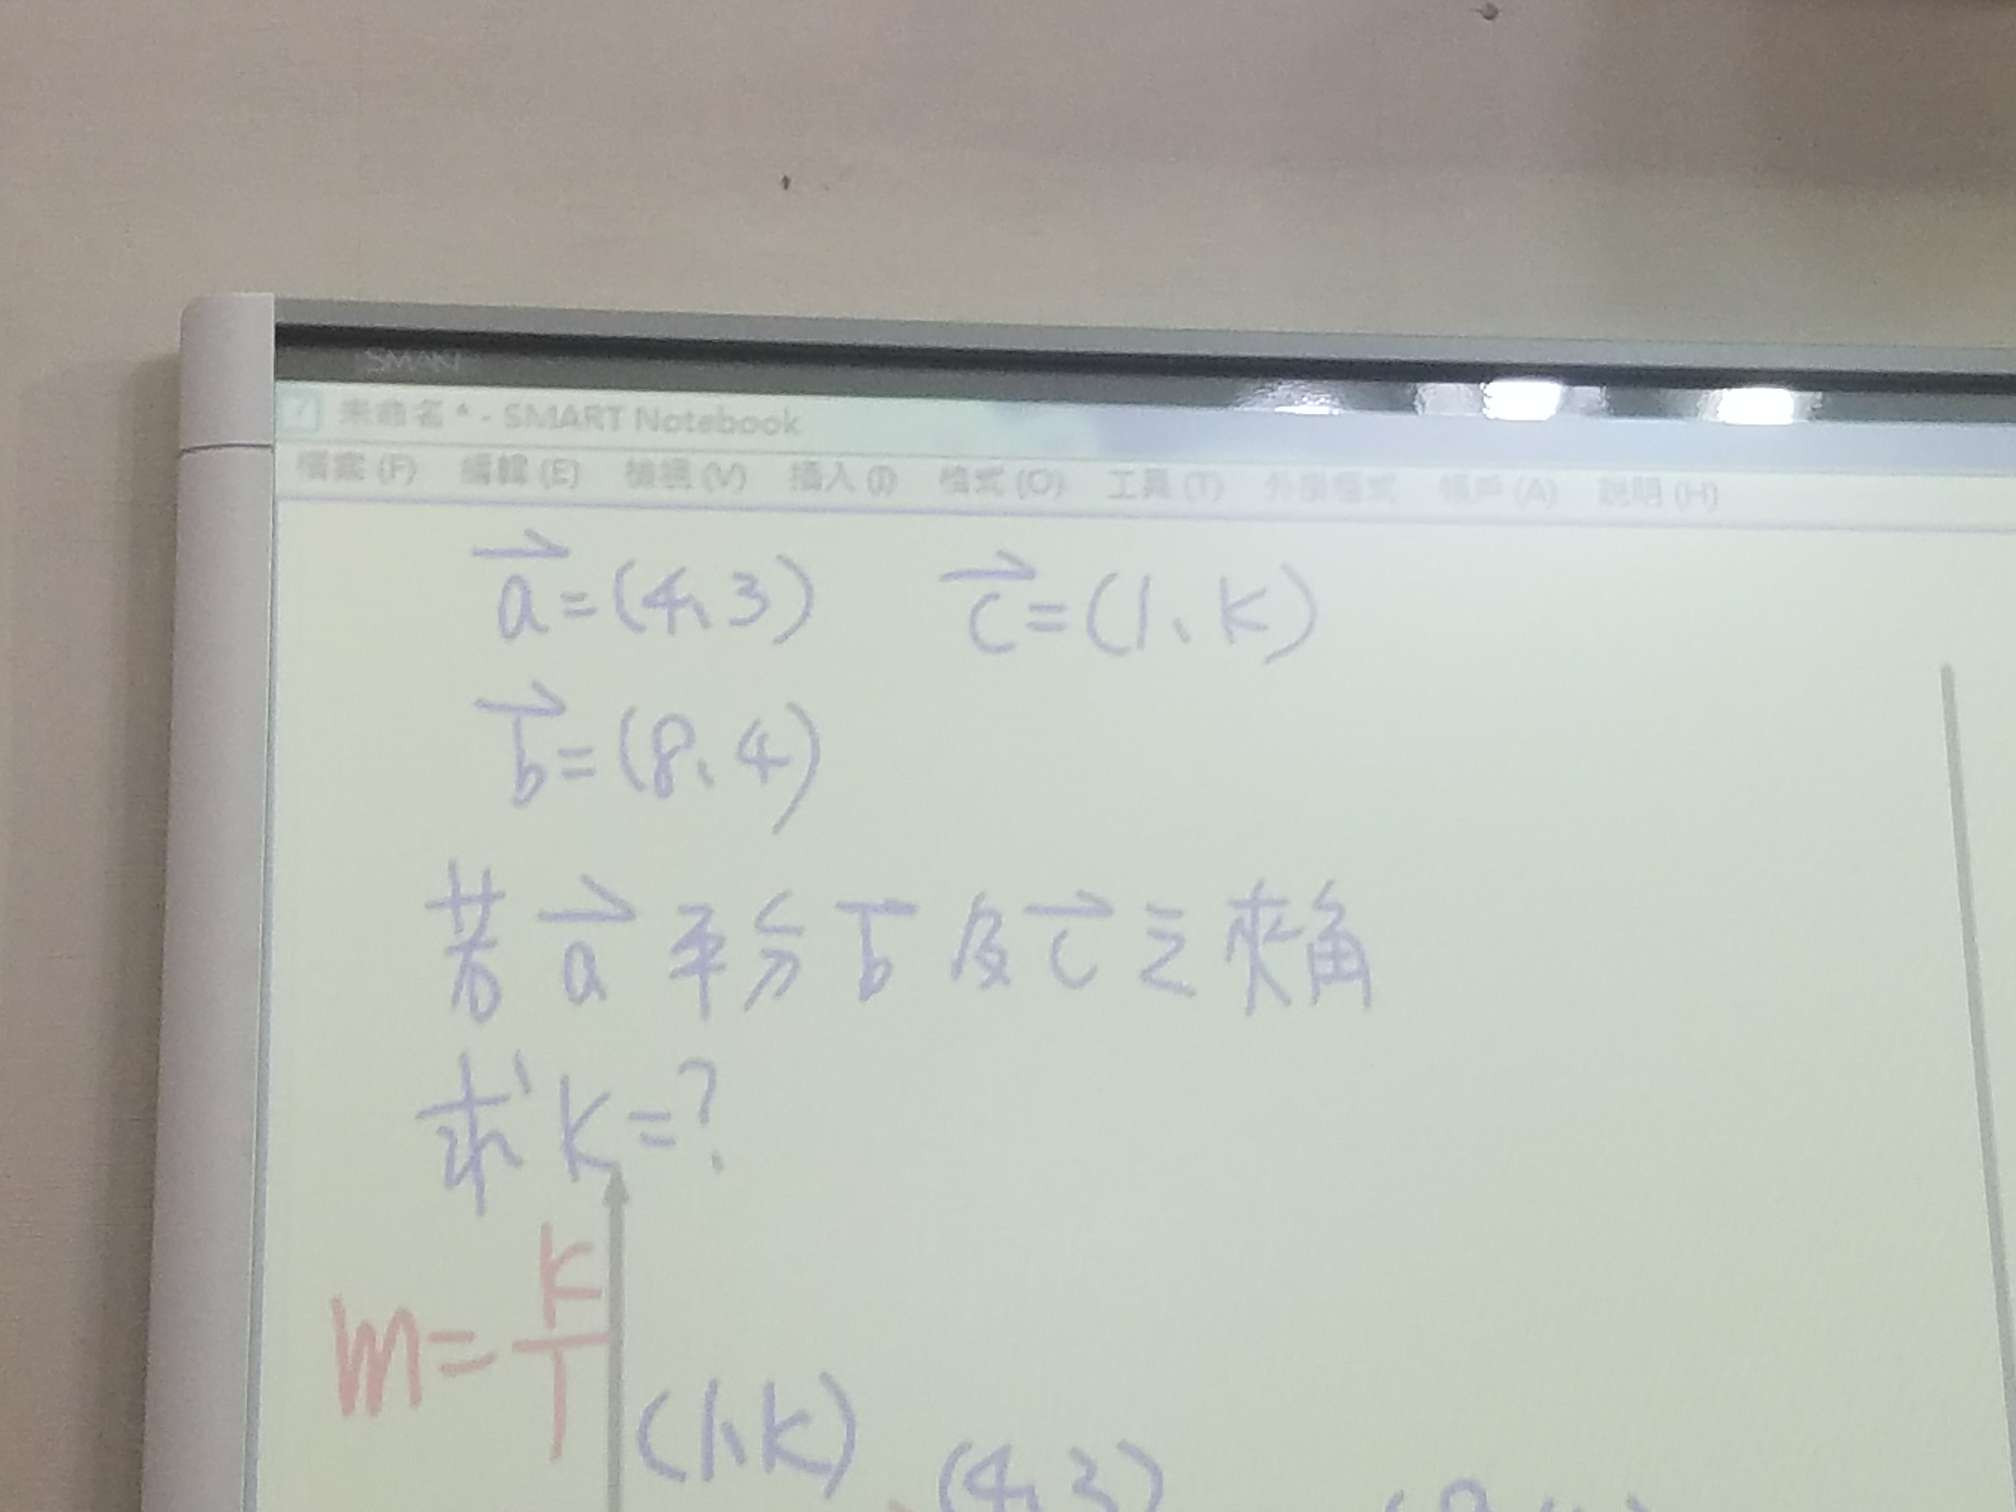 SMART
未命名 * - SMART Notebook
檔案 (F) 編輯 (E) 檢視 (V) 插入 (I) 格式 (O) 工具 (T) 外掛程式 帳戶 (A) 說明 (H)
a=(4、3) c=(1、k)
b=(8、4)
若 a 平分 b 及 c 之夾角
求 k=?
m=k/1
(1、k)
(4、3)